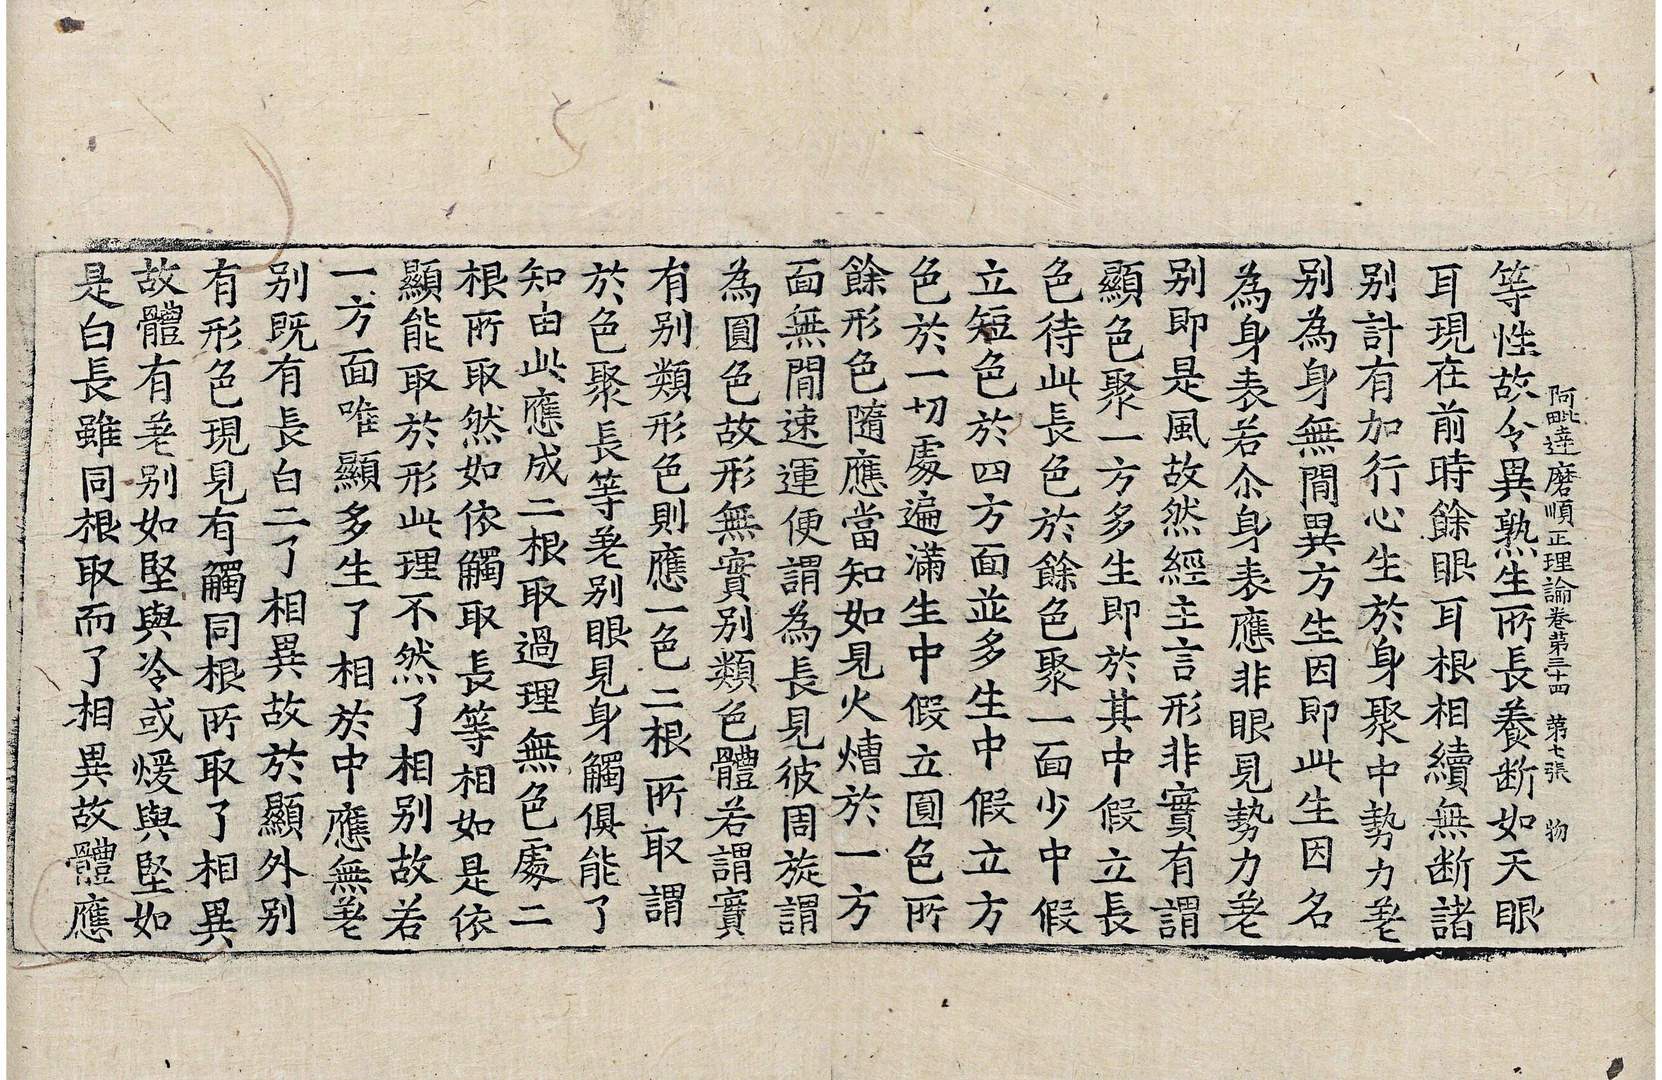 阿毗達磨順正理論卷第三十四　第七張　物
等性故令異熟生所長養断如天眼
耳現在前時餘眼耳根相續無断諸
别計有加行心生於身聚中勢力差
别為身無間異方生因即此生因名
為身表若尒身表應非眼見勢力差
别即是風故然經主言形非實有謂
顯色聚一方多生即於其中假立長
色待此長色於餘色聚一面少中假
立短色於四方面並多生中假立方
色於一切處遍滿生中假立圓色所
餘形色隨應當知如見火㷮於一方
面無間速運便謂為長見彼周旋謂
為圓色故形無實别類色體若謂實
有别類形色則應一色二根所取謂
於色聚長等差别眼見身觸俱能了
知由此應成二根取過理無色處二
根所取然如依觸取長等相如是依
顯能取於形此理不然了相别故若
一方面唯顯多生了相於中應無差
别既有長白二了相異故於顯外别
有形色現見有觸同根所取了相異
故體有差别如堅與冷或煖與堅如
是白長雖同根取而了相異故體應